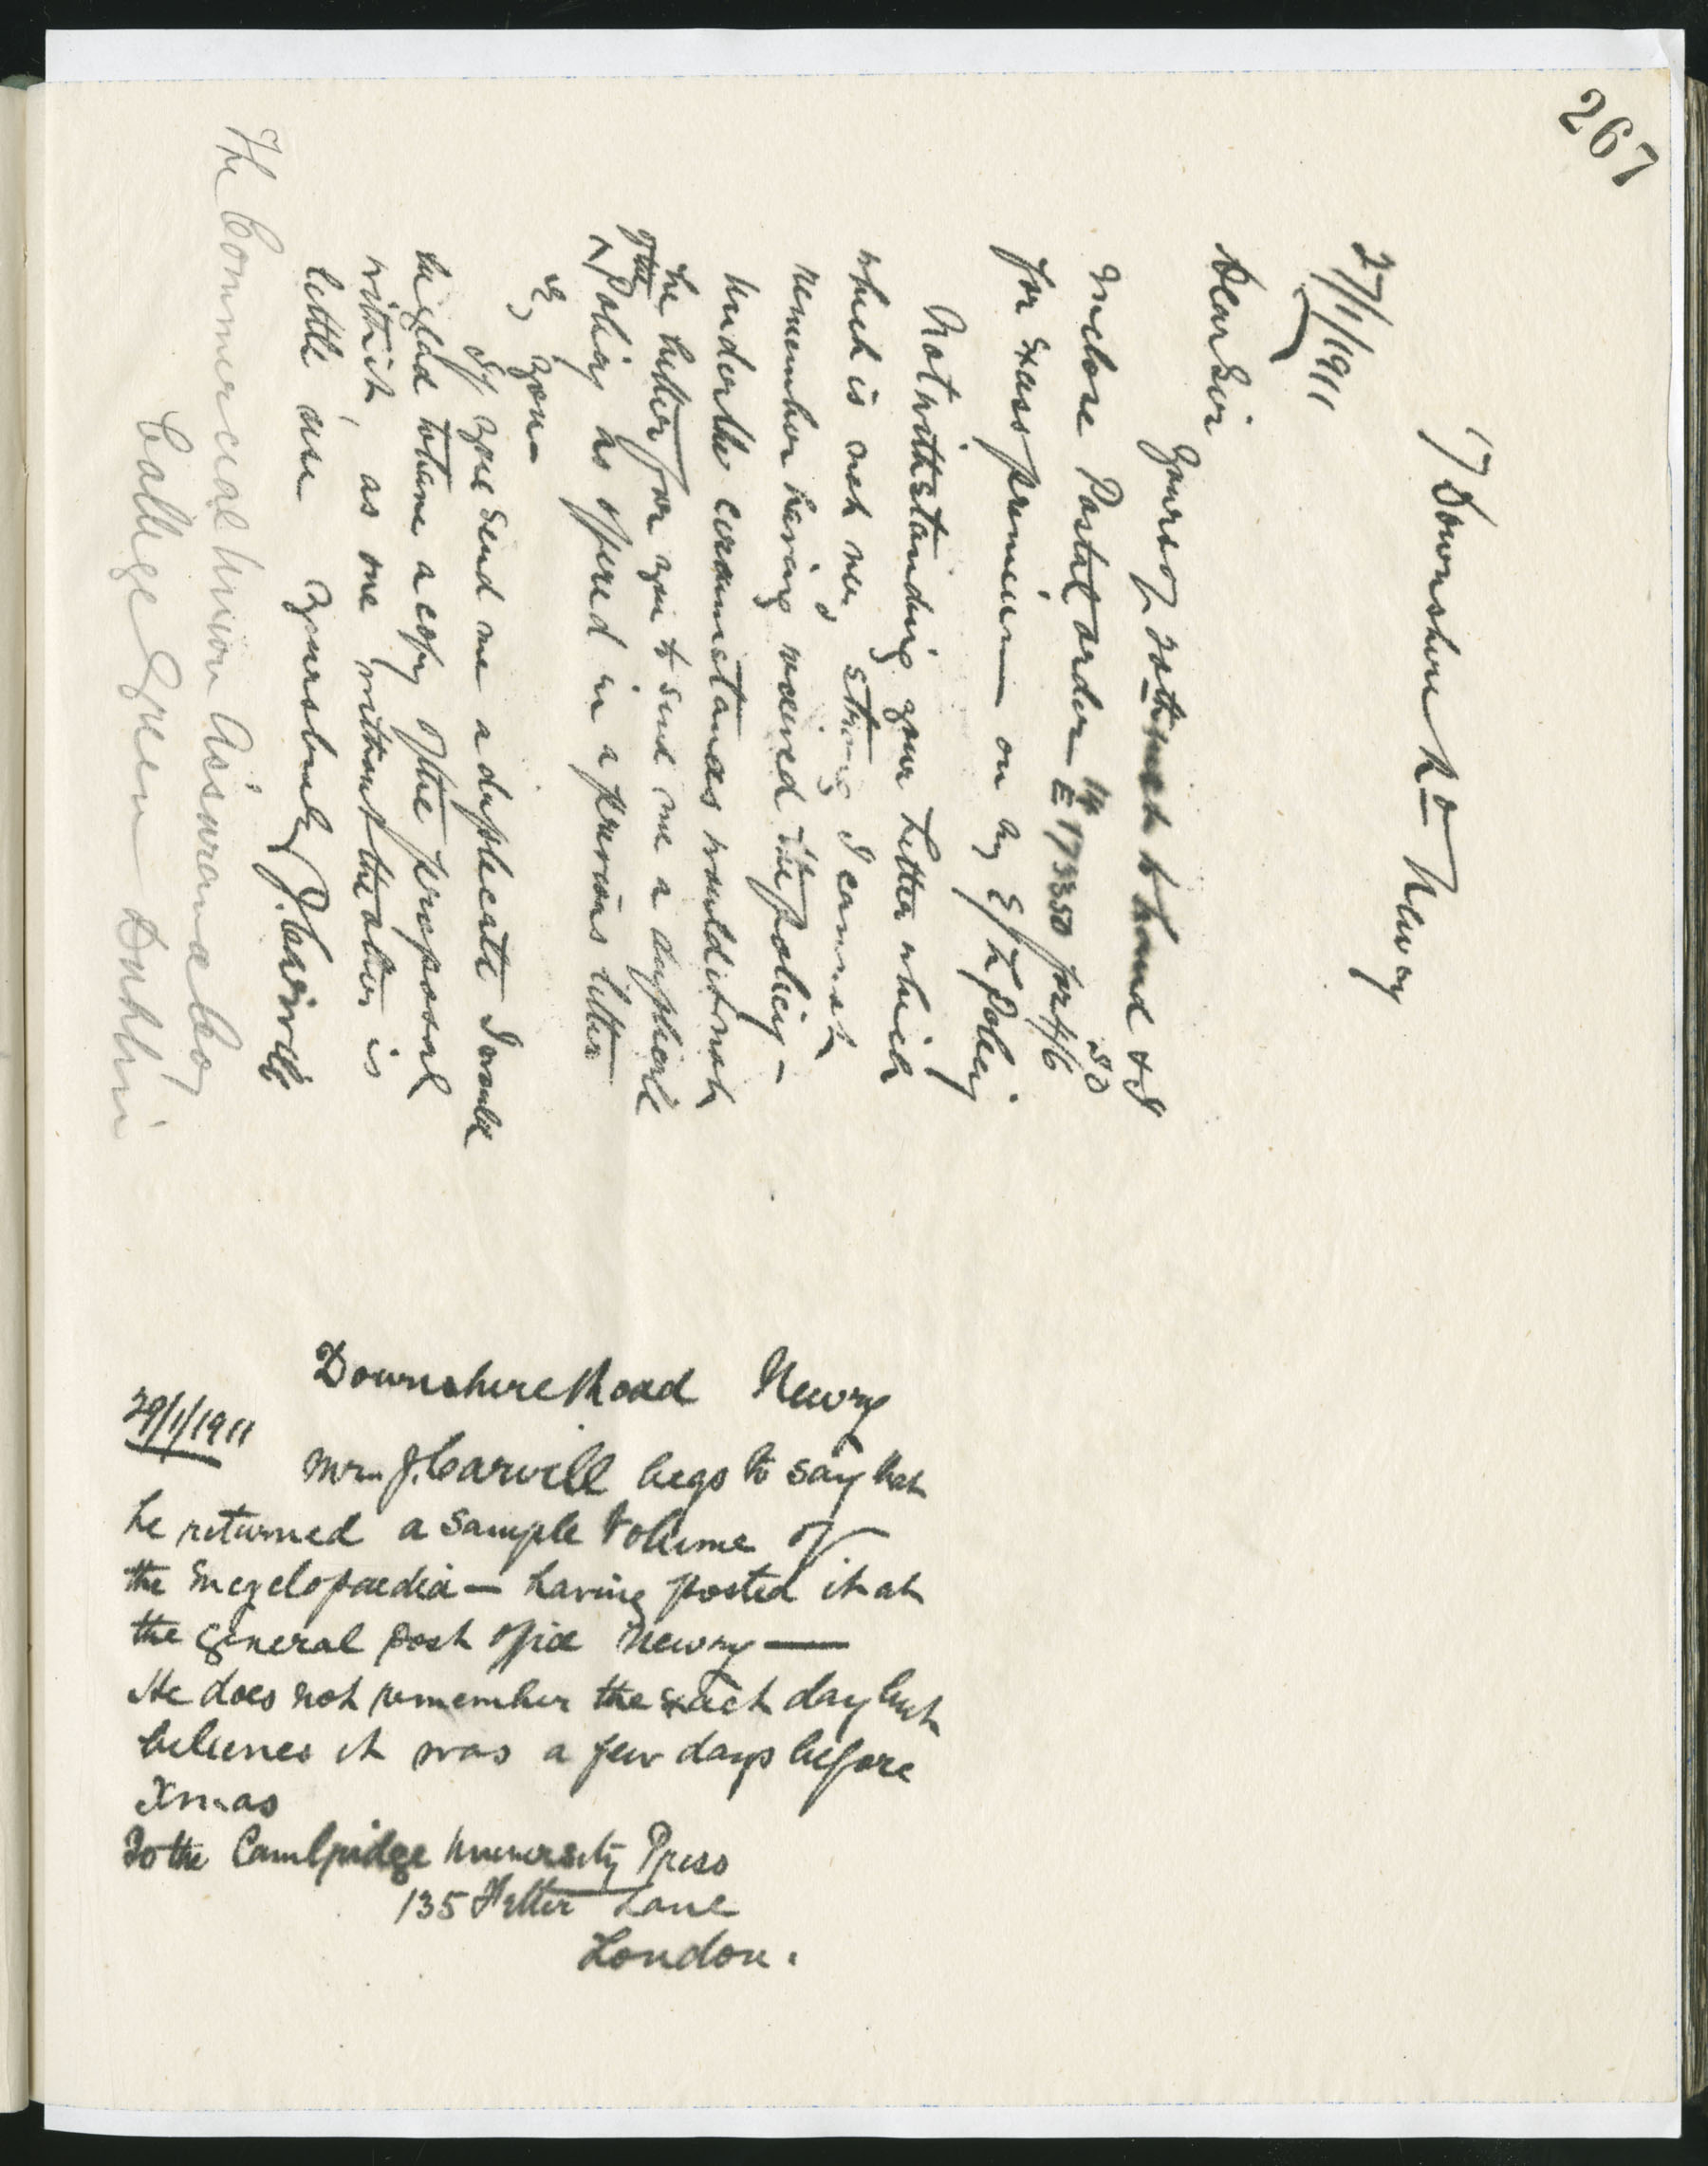 267
17 Downshire Rd Newry
27/1/1911
Dear Sir
Yours of 20th inst to hand & I
inclose Postal order 173350 for 4/6
for exass premium on my E/L Policy
Notwithstanding your Letter which
which is not very strong I cannot
remember having received the policy –
Under the circumstances would it not
be better for you to send me a duplicate
of the Policy as offered in a previous letter
by you
If you send me a duplicate I would
be glad to have a copy of the proposal
with it, as one without the other is
little use Yours truly J. Carvill
The Commercial Union Assurance Coy
College Green Dublin
Downshire Road Newry
29/1/1911
Mr J. Carvill begs to say that
he returned a sample Volume of
the Encyclopaedia — having posted it at
the general post office Newry —
He does not remember the exact day but
believes it was a few days before
Xmas
To the Cambridge University Press
135 Fetter Lane
London.